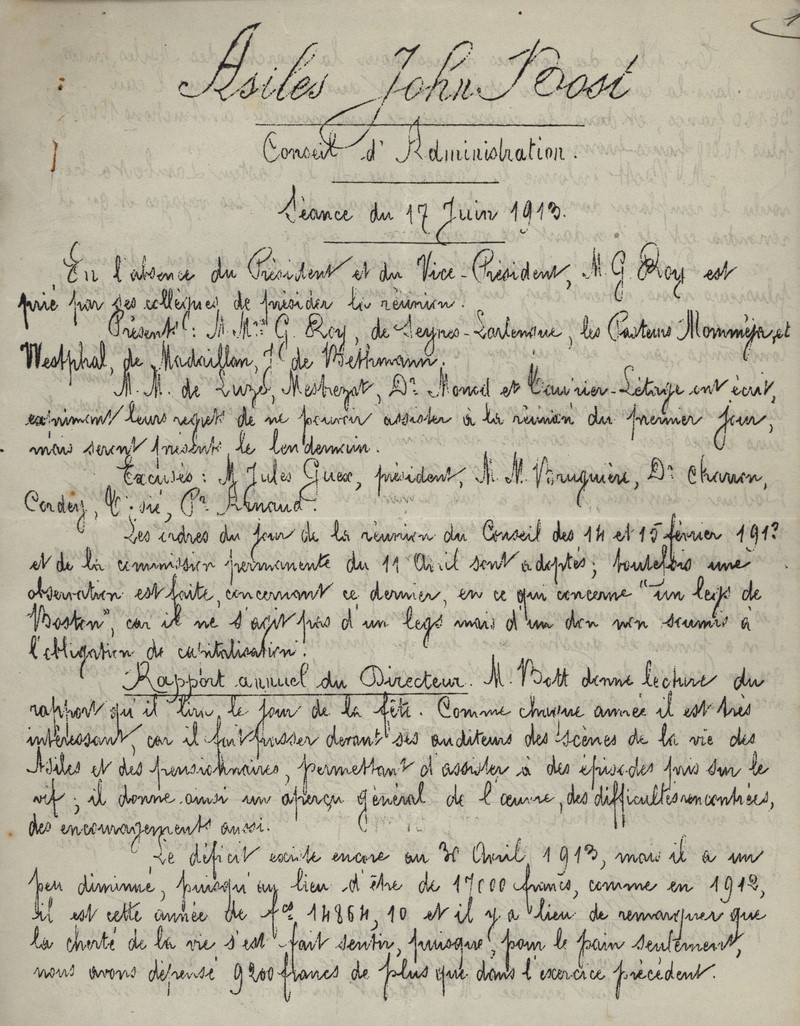 1
Asiles John Bost
Conseil d'Administration.
Séance du 17 Juin 1913.
En l'absence du Président et du Vice-Président, M. G. Roy est
prié par ses collègues de présider la réunion.
Présents : M. Mrs G. Roy, de Seynes-Larlenque, les Pasteurs Momméja et
Westphal, de Madaillan, J. de Bethmann.
M. M. de Luze, Mestrezat, Dr Monod et Couvrier-Létage ont écrit,
exprimant leurs regrets de ne pouvoir assister à la réunion du premier jour,
mais seront présents le lendemain.
Excusés : M Jules Guex, président, M. M. Bruguière, Dr Charron,
Cordey, Pr Arnaud.
Les ordres du jour de la réunion du Conseil des 14 et 15 février 1913
et de la commission permanente du 11 Avril sont adoptés ; toutefois une
observation est faite, concernant ce dernier, en ce qui concerne "un legs de
Boston", car il ne s'agit pas d'un legs mais d'un don non soumis à
l'obligation de capitalisation.
Rapport annuel du Directeur. M. Bott donne lecture du
rapport qu'il lira le jour de la fête. Comme chaque année il est très
intéressant, car il fait passer devant ses auditeurs des scènes de la vie des
Asiles et des pensionnaires, permettant d'assister à des épisodes pris sur le
vif ; il donne ainsi un aperçu général de l'œuvre, des difficultés rencontrées,
des encouragements aussi.
Le déficit existe encore au 30 Avril 1913, mais il a un
peu diminué, puisqu'au lieu d'être de 17000 francs, comme en 1912,
il est cette année de fcs 14864,10 et il y a lieu de remarquer que
la cherté de la vie s'est fait sentir, puisque, pour le pain seulement,
nous avons dépensé 9200 francs de plus que dans l'exercice précédent.